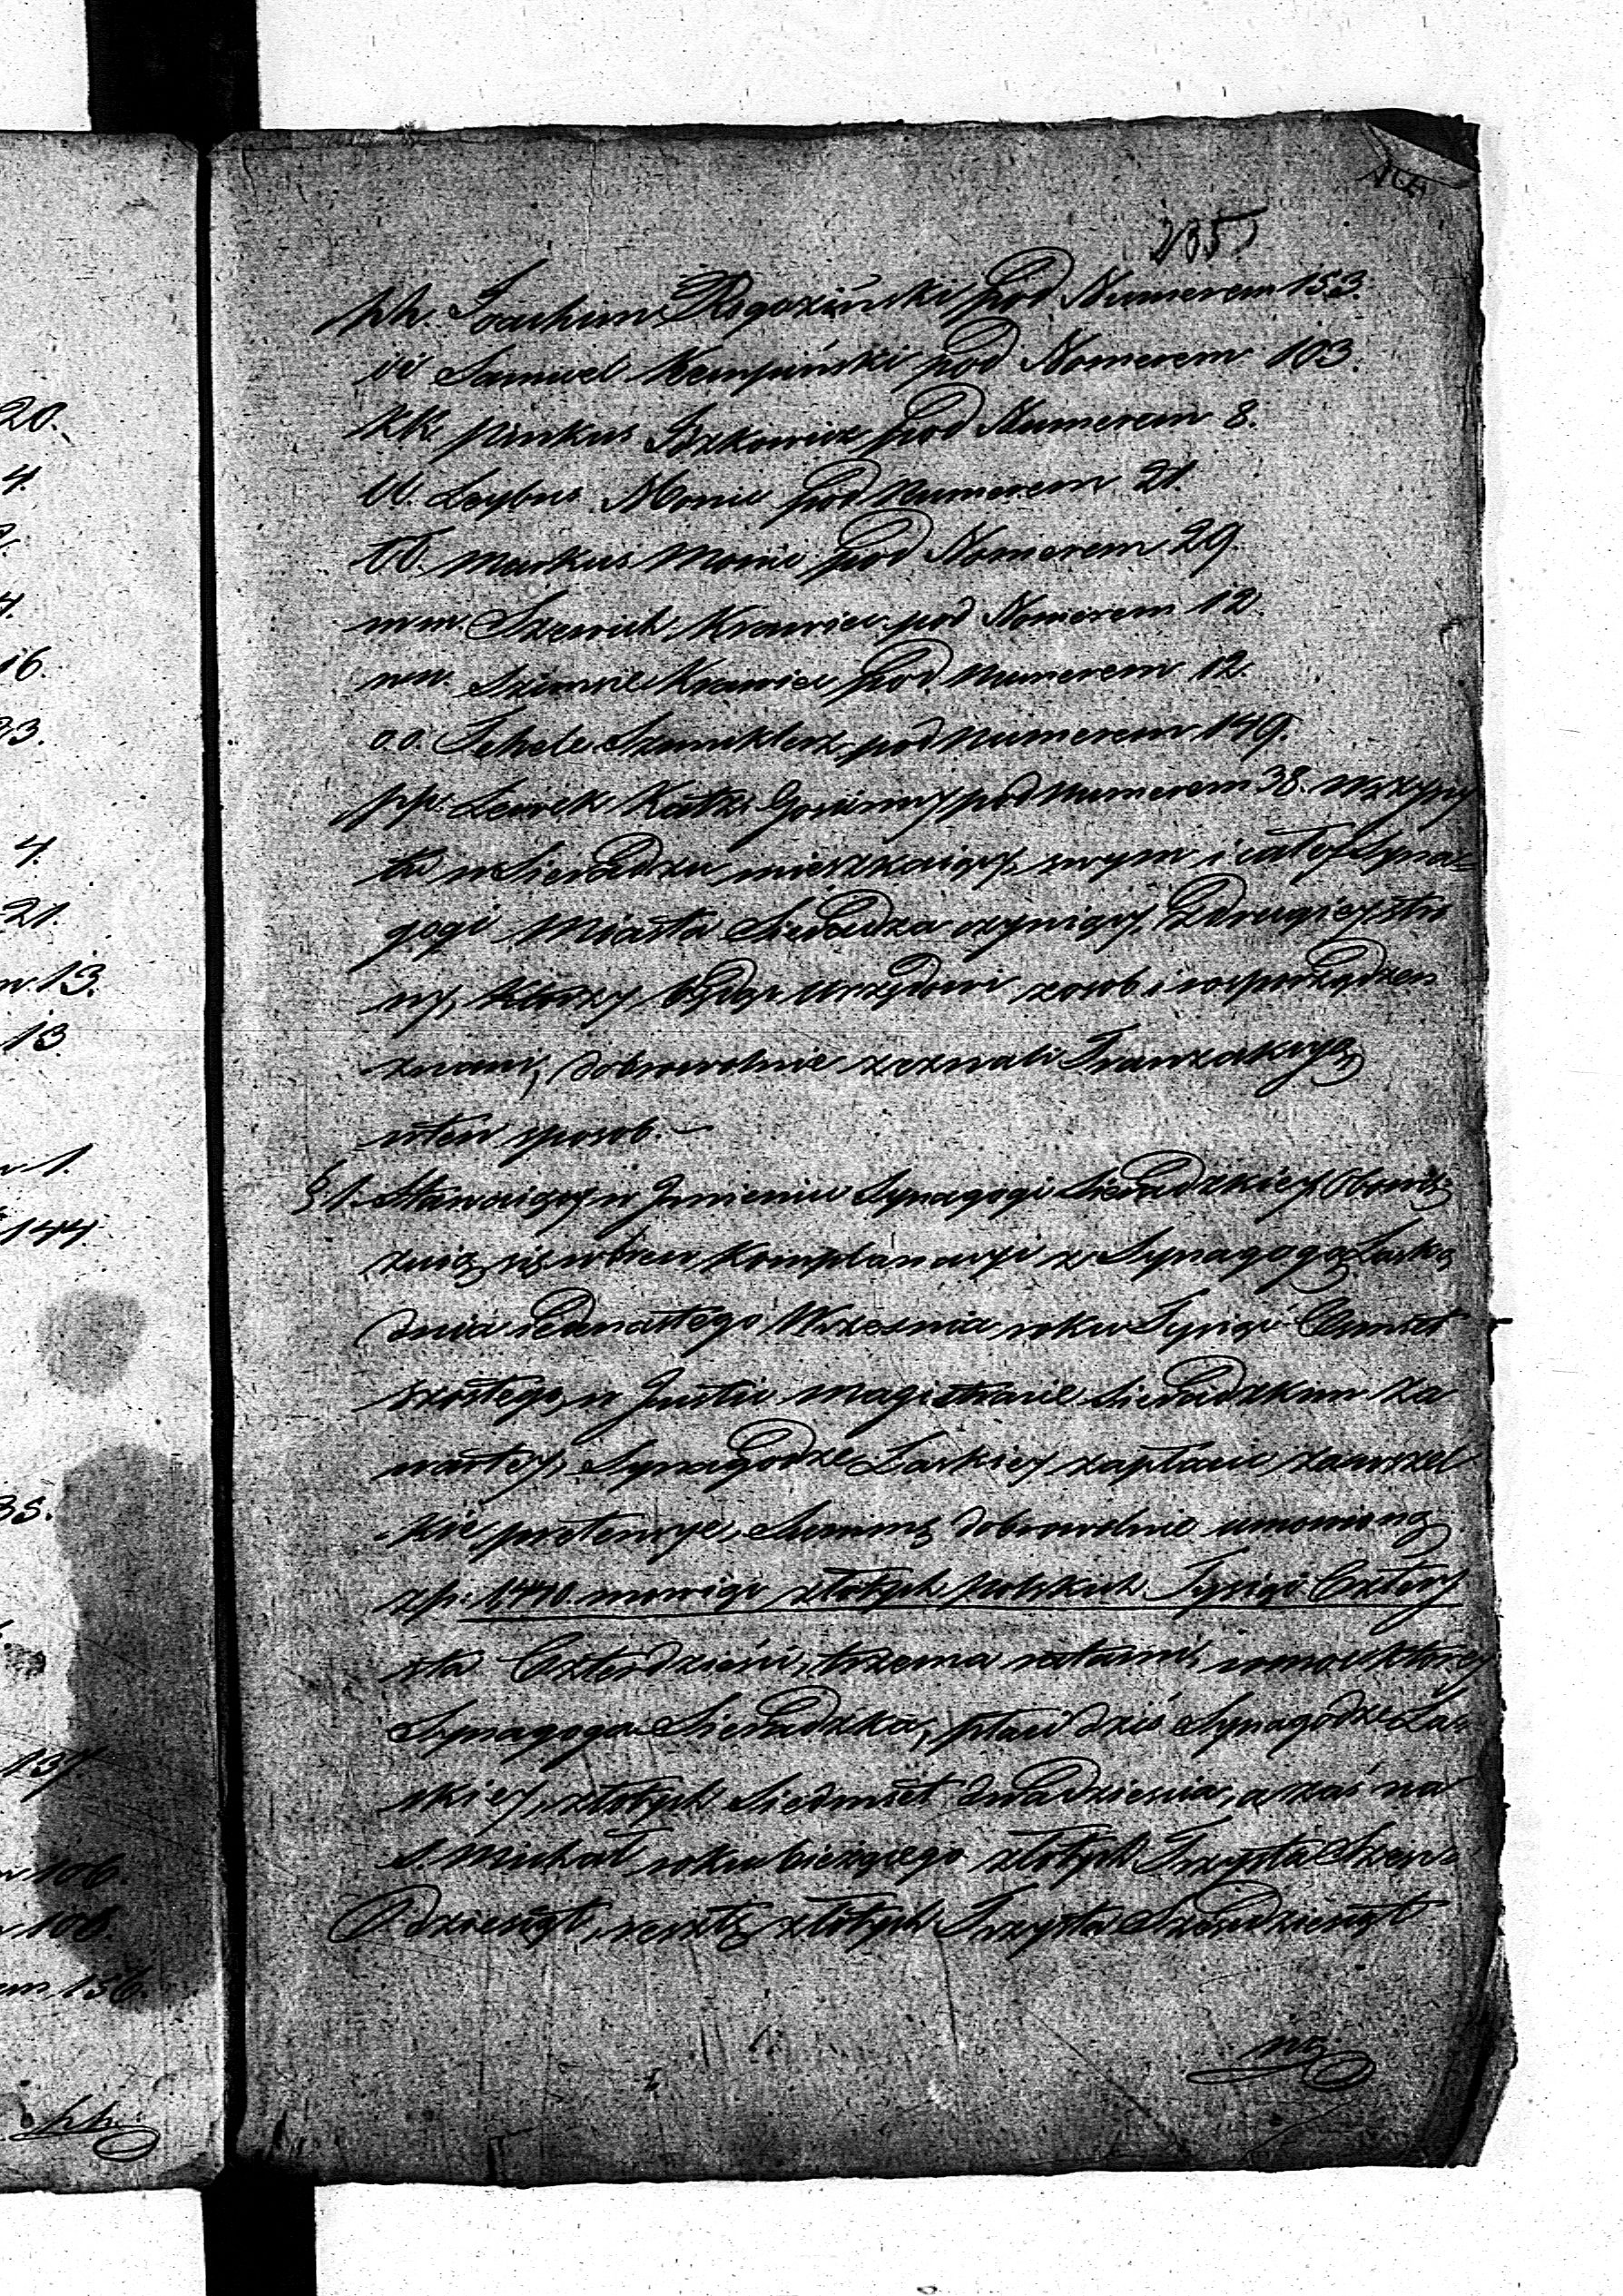 235
hh. Joachim Rogoziński pod Numerem 153.
ii Samuel Kempiński pod Nomerem 103.
kk. Pinkus Iżkowicz pod Numerem 8.
ll. Leybus Monie pod Numerem 21.
ll. Markus Monie pod Nomerem 29
mm. Krawiec pod Nomerem 12.
nn. Szimsie Krawiec pod Numerem 12.
oo. Szmuklerz pod Numerem 149.
pp. Lewek Katz Gościnny pod Numerem 38. Wszyscy
tu w Sieradzu mieszkaiący, swym i całey Syna=
gogi Miasta Sieradza czyniący, z drugiey stro
ny, Którzy będąc Urzędowi z osob i rosporządzen
znani, dobrowolnie zeznali Tranzakcyą
w ten sposob. —
§ 1. Stawaiący w Jmieniu Synagogi Sieradzkiey Obowią=
zuią się w brew Komplanacyi z Synagogą Łaską
dnia iedenastego Września roku Tysiąc Osmset
szostego, w Jnstie Magistracie Sieradzkim za
wartey, Synagodze Łaskiey zapłacić za wszel
kie pretensye, Summę dobrowolnie umowioną
zp: 1440. mowiąc złotych Polskich Tysiąc Cztery
sta Czterdzieści, trzema ratami, w moc Ktorey
Synagoga Sieradzka, płaci dziś Synagodze Ła=
skiey, złotych Siedmset dwadzieścia, a zaś na
S. Michał roku bieżącego złotych Trzysta Sześć=
dziesiąt, resztę złotych Trzysta Sześćdziesiąt
na
20.
4.
4.
16.
23.
4.
21.
13.
13.
1.
144.
35.
137
106.
106.
156.
hh.